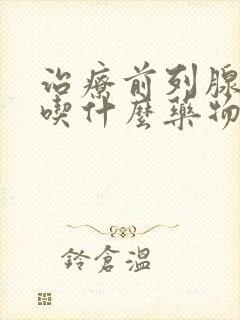 治療前列腺
喫什麼藥物
鈴倉溫